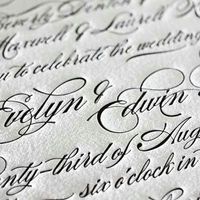 Beverly Denton
Maxwell & Laurell
to celebrate the wedding
Evelyn & Edwin
-third of Aug
six o'clock in